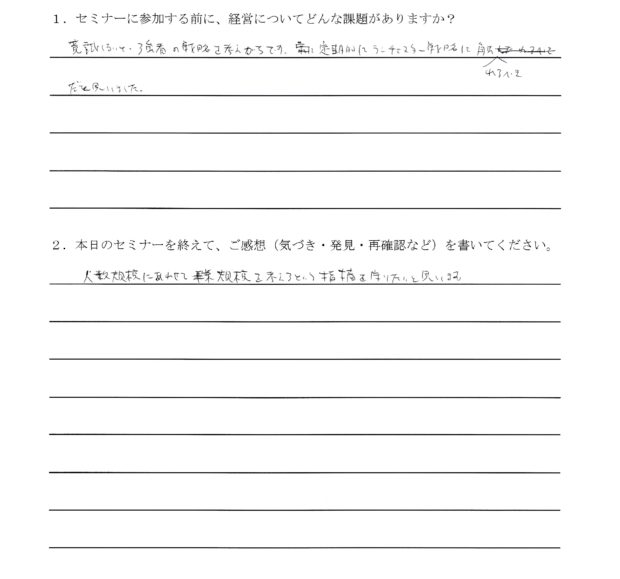 １．セミナーに参加する前に、経営についてどんな課題がありますか？
強者の戦略を考えがちです。常に定期的にランチェスター戦略に触
れるべき
だと思いました。
２．本日のセミナーを終えて、ご感想（気づき・発見・再確認など）を書いてください。
人数規模にあわせて事業規模を考えるという指標を守りたいと思います